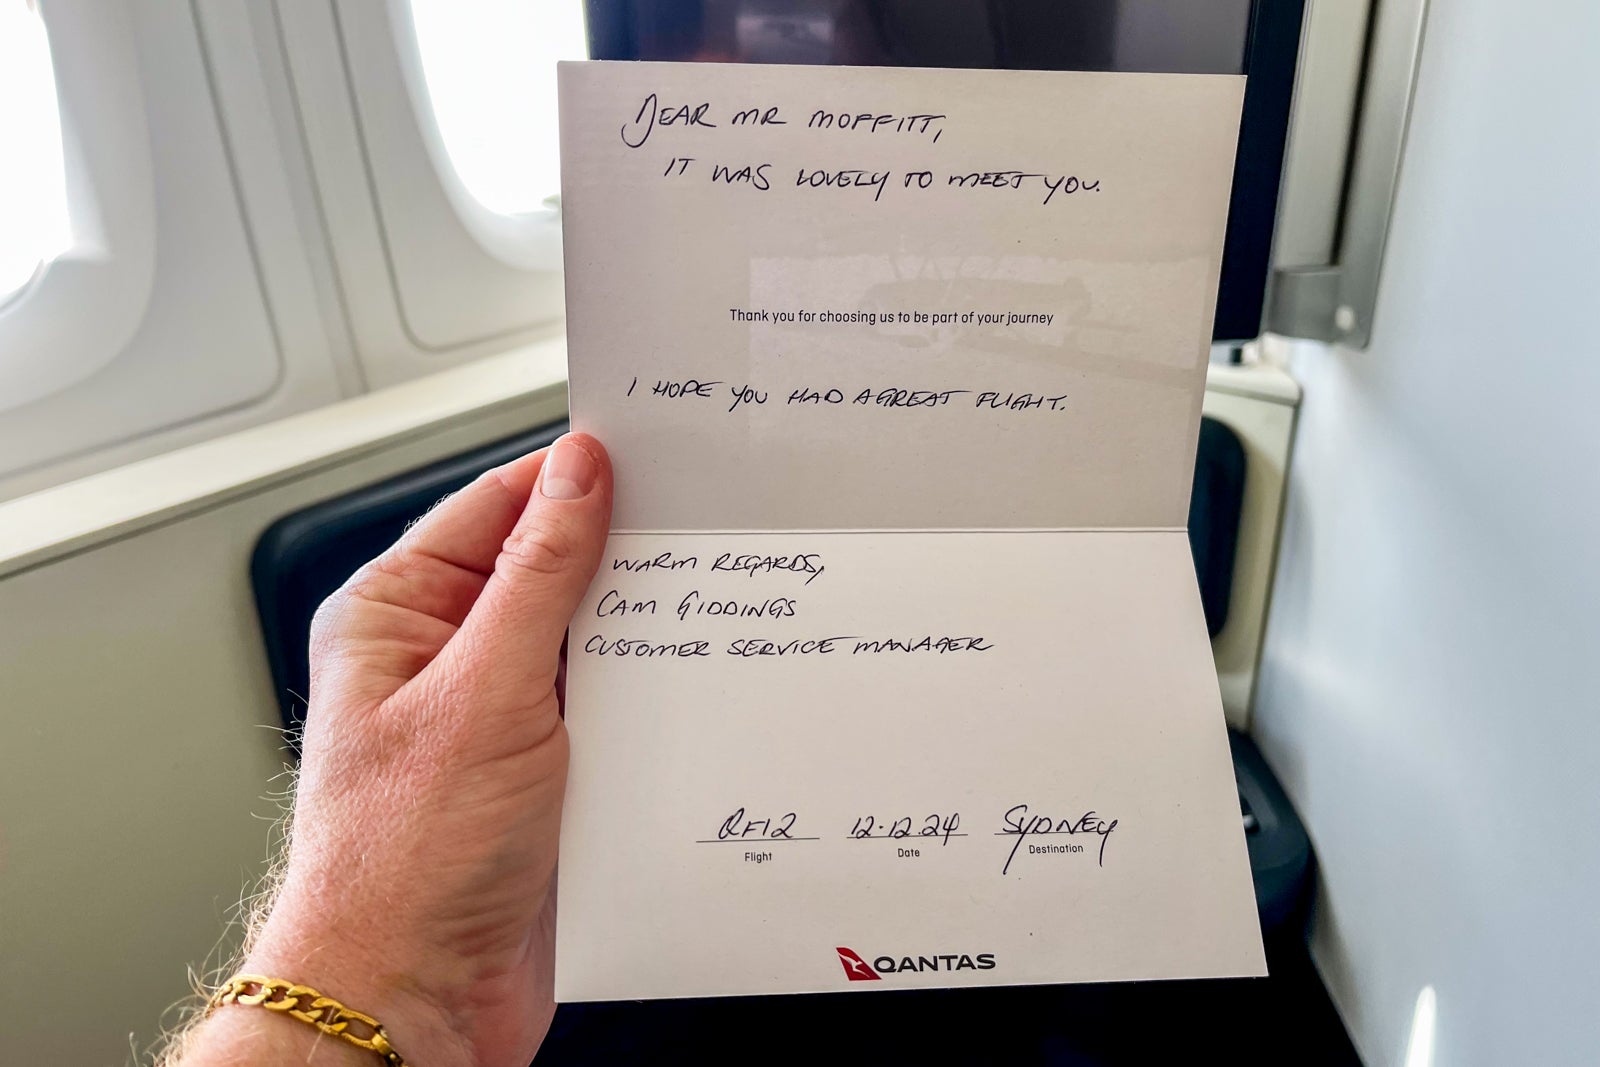 DEAR MR MOFFITT,
IT WAS LOVELY TO MEET YOU.
Thank you for choosing us to be part of your journey
I HOPE YOU HAD A GREAT FLIGHT.
WARM REGARDS,
CAM GIDDINGS
CUSTOMER SERVICE MANAGER
QF12 12.12.24 SYDNEY
Flight Date Destination
QANTAS